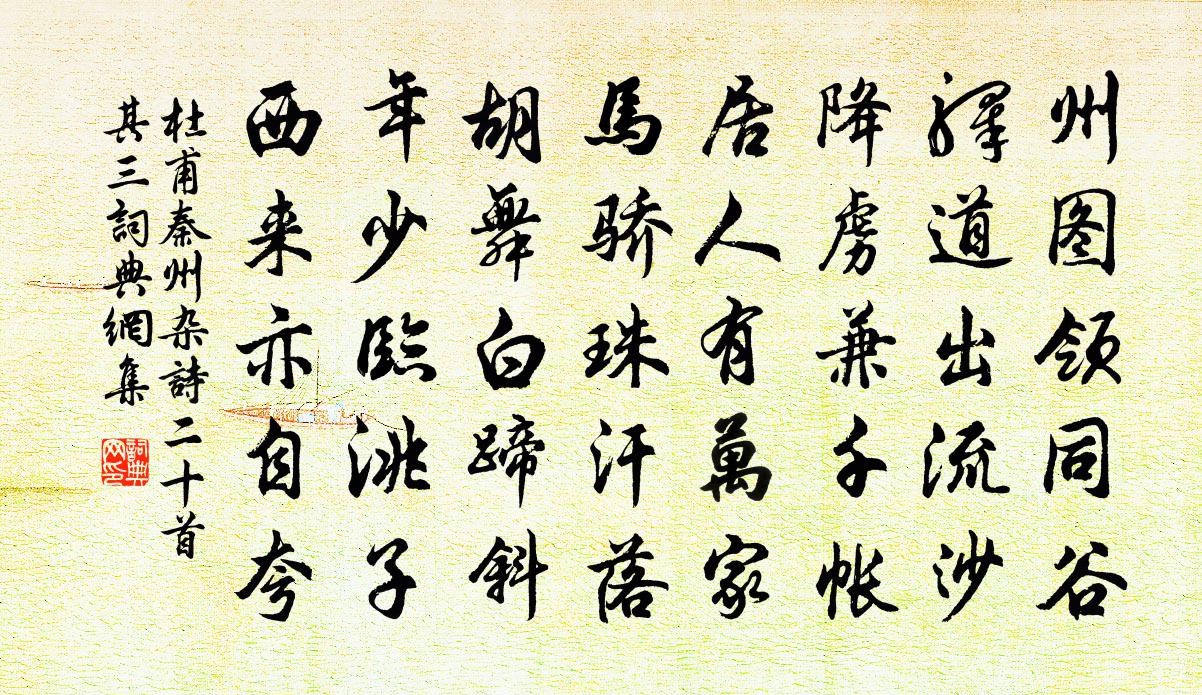 州图领同谷
驿道出流沙
降虏兼千帐
居人有萬家
馬骄珠汗落
胡舞白蹄斜
年少臨洮子
西来亦自夸
杜甫秦州杂詩二十首
其三詞典網集
詞典网印